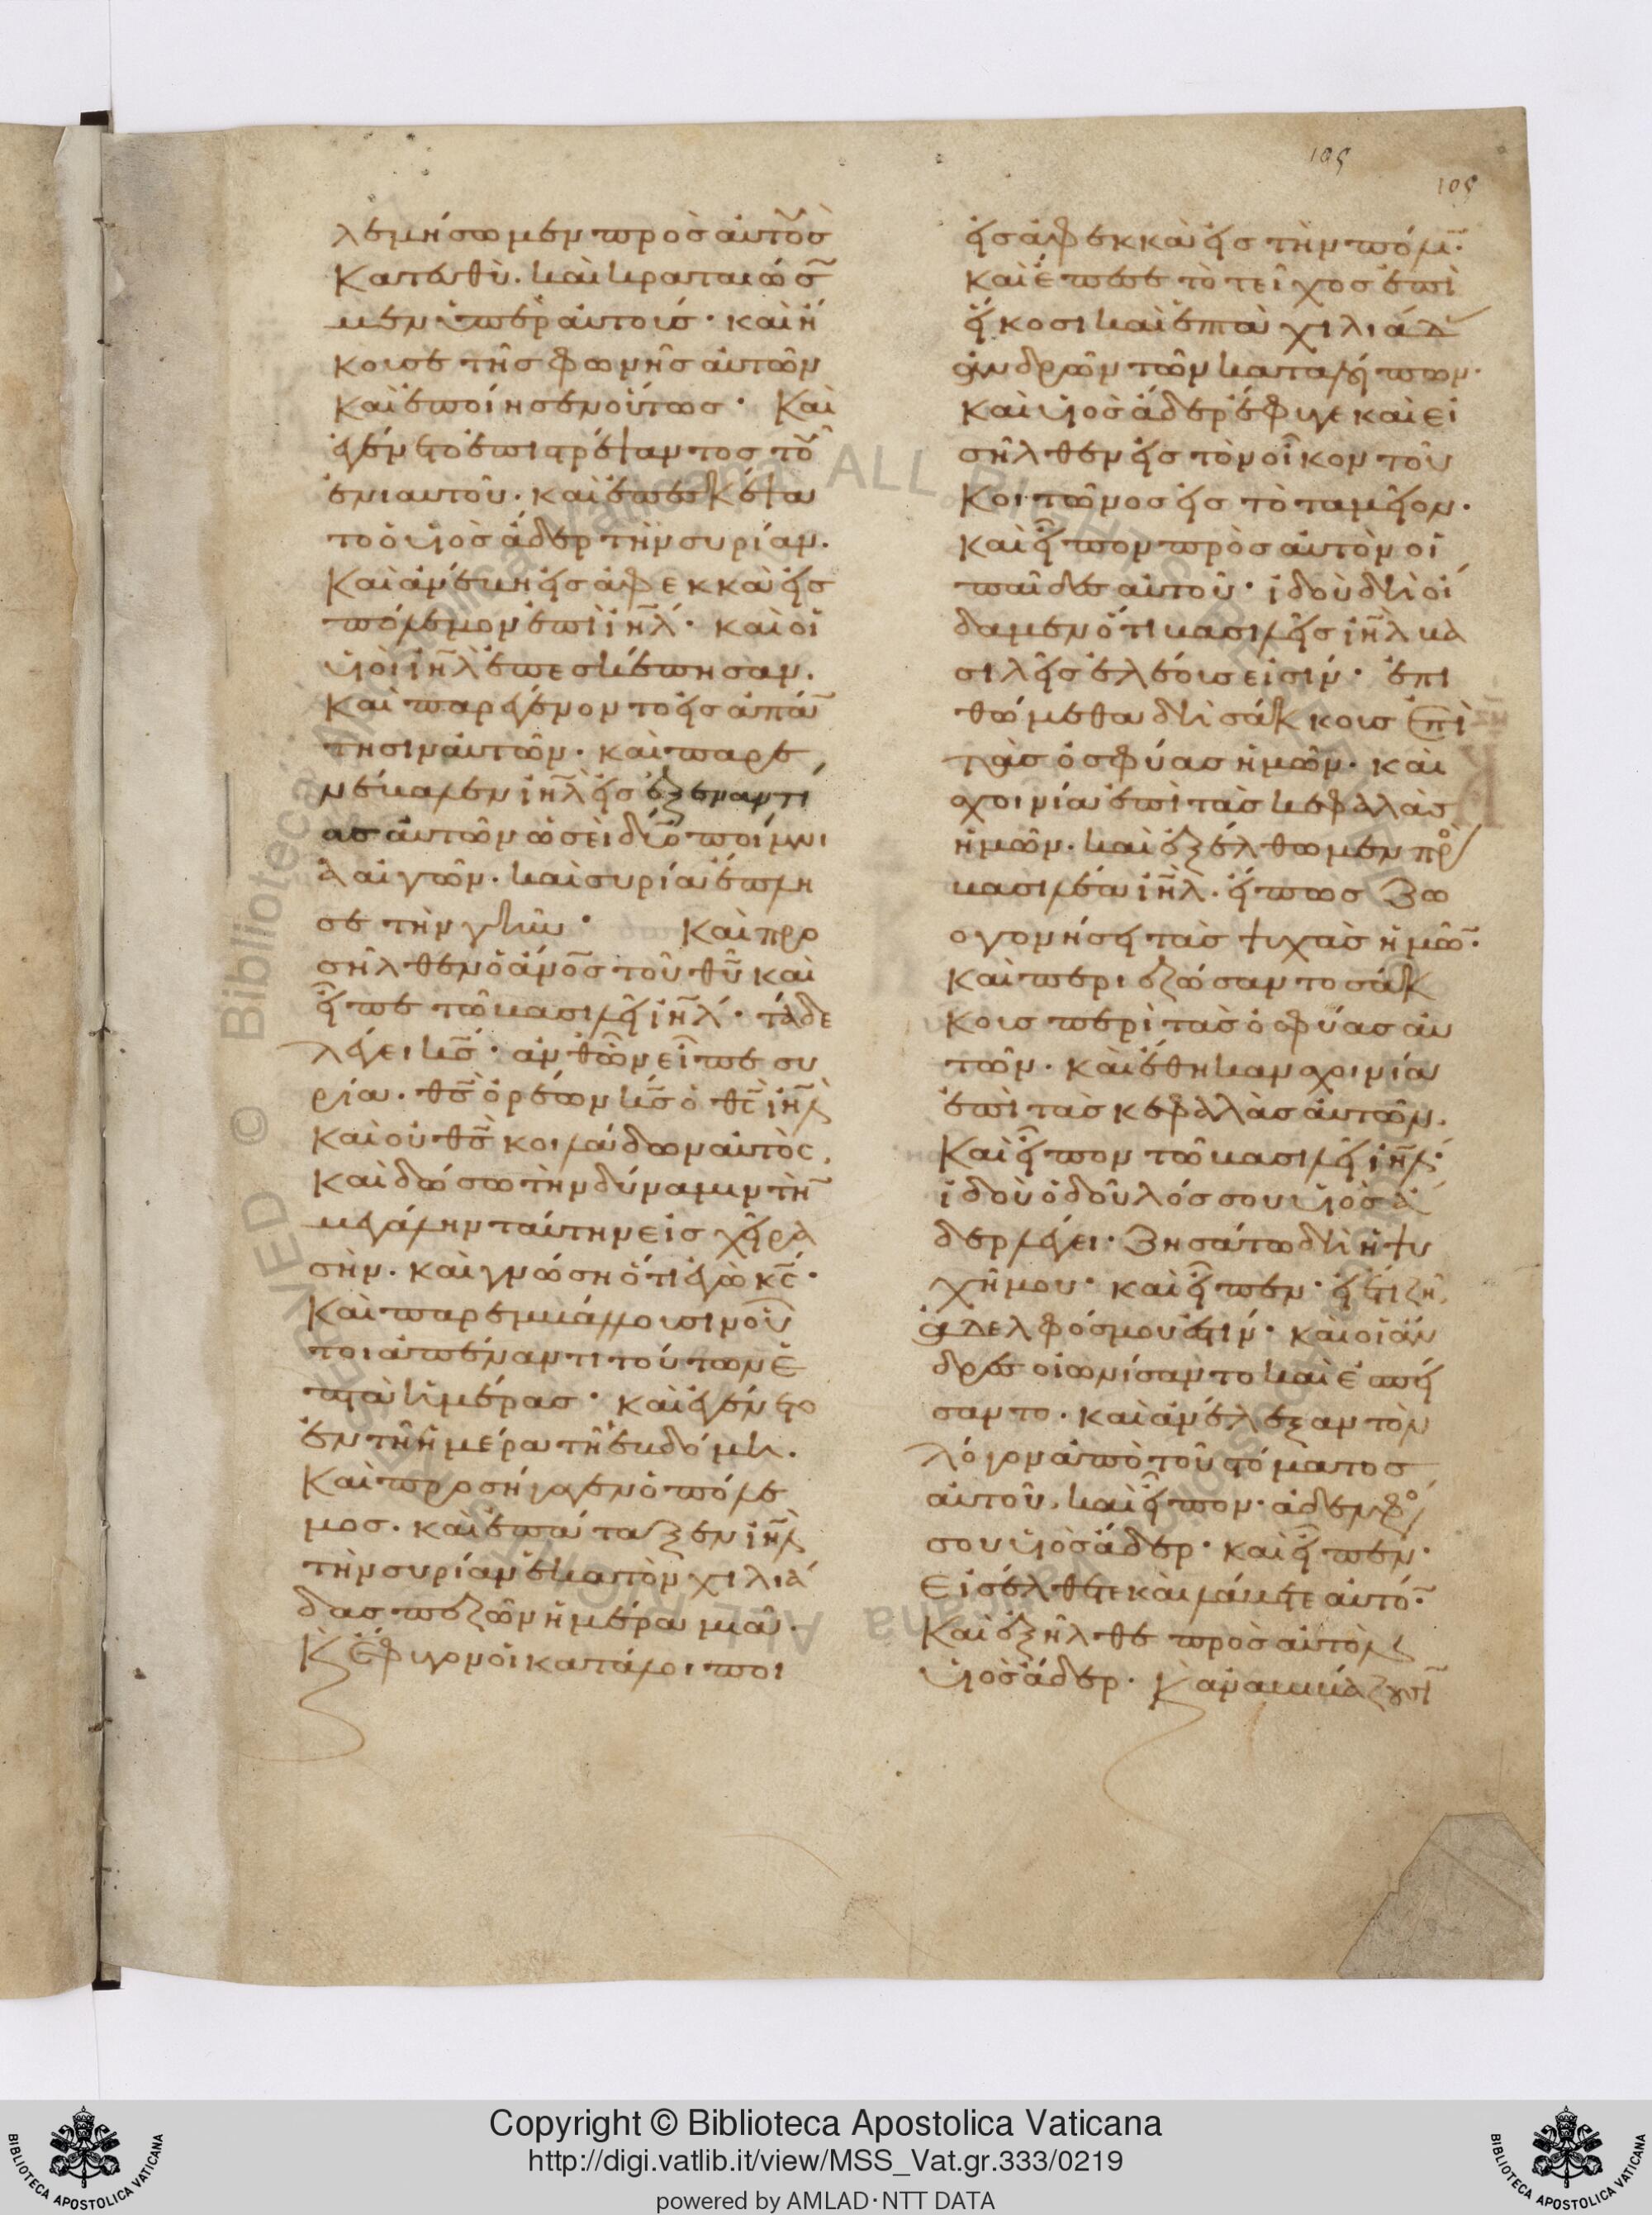 105
105
λεμήσωμεν πρὸς αὐτοὺς
κατευθὺ. καὶ κραταιώσο̅
μεν ὑπὲρ αὐτούς· καὶ ἤ
κουσε τῆς φωνῆς αὐτῶν
καὶ ἐποίησεν οὕτως· Καὶ
ἐγένετο ἐπιστρέψαντος τοῦ
ἐνιαυτοῦ. καὶ ἐπεσκέψα
το ὁ υἱὸς ἄδερ τὴν συρίαν.
Καὶ ἀνέβη εἰς ἀφεκκὰ εἰς
πόλεμον ἐπὶ ἰη̅λ· καὶ οἱ
υἱοὶ ἰη̅λ ἐπεσκέπησαν.
καὶ παρεγένοντο εἰς ἀπάν̅
τησιν αὐτῶν· καὶ παρε
νέβαλεν ἰη̅λ εἰς ἐξεναντί
ας αὐτῶν ὡσεὶ δύο ποίμνι
α αἰγῶν. καὶ συρία ἔπλη
σε τὴν γῆν· Καὶ προ
σῆλθεν ὁ ἄνο̅ς τοῦ θυ̅ καὶ
εἶπε τῷ βασιλεῖ ἰη̅λ· τάδε
λέγει κς̅· ἀνθ ὧν εἶπε συ
ρία. θς̅ ὀρέων κς̅ ὁ θς̅ ἰη̅λ
καὶ οὐ θς̅ κοιλάδων αὐτὸς,
καὶ δώσω τὴν δύναμιν τὴν̅
μεγάλην ταύτην εἰς χεῖρα
σὴν. καὶ γνώσῃ ὅτι ἐγὼ κς̅·
Καὶ παρεμβάλλουσιν οὗ
τοι ἀπέναντι τούτων ἑ
πτὰ ἡμέρας· καὶ ἐγένετο
ἐν τῇ ἡμέρα τῇ ἑβδόμῃ.
Καὶ προσήγαγεν ὁ πόλε
μος. καὶ ἐπάταξεν ἰη̅λ
τὴν συρίαν ἑκατὸν χιλιά
δας πεζῶν ἡμέρα μιᾶ.
Κ ἔφυγον οἱ κατάλοιποι
εἰς ἀφεκκὰ εἰς τὴν πόλιν̅.
καὶ ἔπεσε τὸ τεῖχος ἐπὶ
εἴκοσι καὶ ἑπτὰ χιλιάδ
ἀνδρῶν τῶν καταλοίπων.
Καὶ υἱὸς ἄδερ ἔφυγε καὶ εἰ
σῆλθεν εἰς τὸν οἶκον τοῦ
κοιτῶνος εἰς τὸ ταμεῖον.
καὶ εἶπον πρὸς αὐτὸν οἱ
παῖδες αὐτοῦ· ἰδοὺ δὴ οἴ
δαμεν ὅτι βασιλεῖς ἰη̅λ βα
σιλεῖς ἐλέους εἰσίν· ἐπι
θώμεθα δὴ σάκκους ἐπὶ
τὰς ὀσφύας ἡμῶν. καὶ
σχοινία ἐπὶ τὰς κεφαλὰς
ἡμῶν. καὶ ἐξέλθωμεν πρὸ
βασιλέα ἰη̅λ. εἴπως ζω
ογονήσει τὰς ψυχὰς ἡμῶν̅.
Καὶ περιεζώσαντο σάκ
κους περὶ τὰς ὀσφύας αὐ
τῶν. καὶ ἔθηκαν σχοινία
ἐπὶ τὰς κεφαλὰς αὐτῶν.
Καὶ εἶπον τῷ βασιλεῖ ἰη̅λ·
ἰδοὺ ὁ δοῦλός σου υἱὸς ἄ
δερ λέγει· ζησάτω δὴ ἡ ψυ
χή μου· καὶ εἶπεν· εἰ ἔτι ζῆ,
ἀδελφός μου ἐστίν· καὶ οἱ ἄν
δρες οἰωνίσαντο καὶ ἐσπεί
σαντο. καὶ ἀνέλεξαν τὸν
λόγον ἀπὸ τοῦ στόματος
αὐτοῦ. καὶ εἶπον· ἀδελφό
σου υἱὸς ἄδερ· καὶ εἶπεν·
Εἰσέλθετε καὶ λάβετε αὐτό̅·
Καὶ ἐξῆλθε πρὸς αὐτὸν
υἱὸς ἄδερ. Κ ἀναβιβάζουσι̅
Copyright © Biblioteca Apostolica Vaticana
http://digi.vatlib.it/view/MSS_Vat.gr.333/0219
powered by AMLAD·NTT DATA